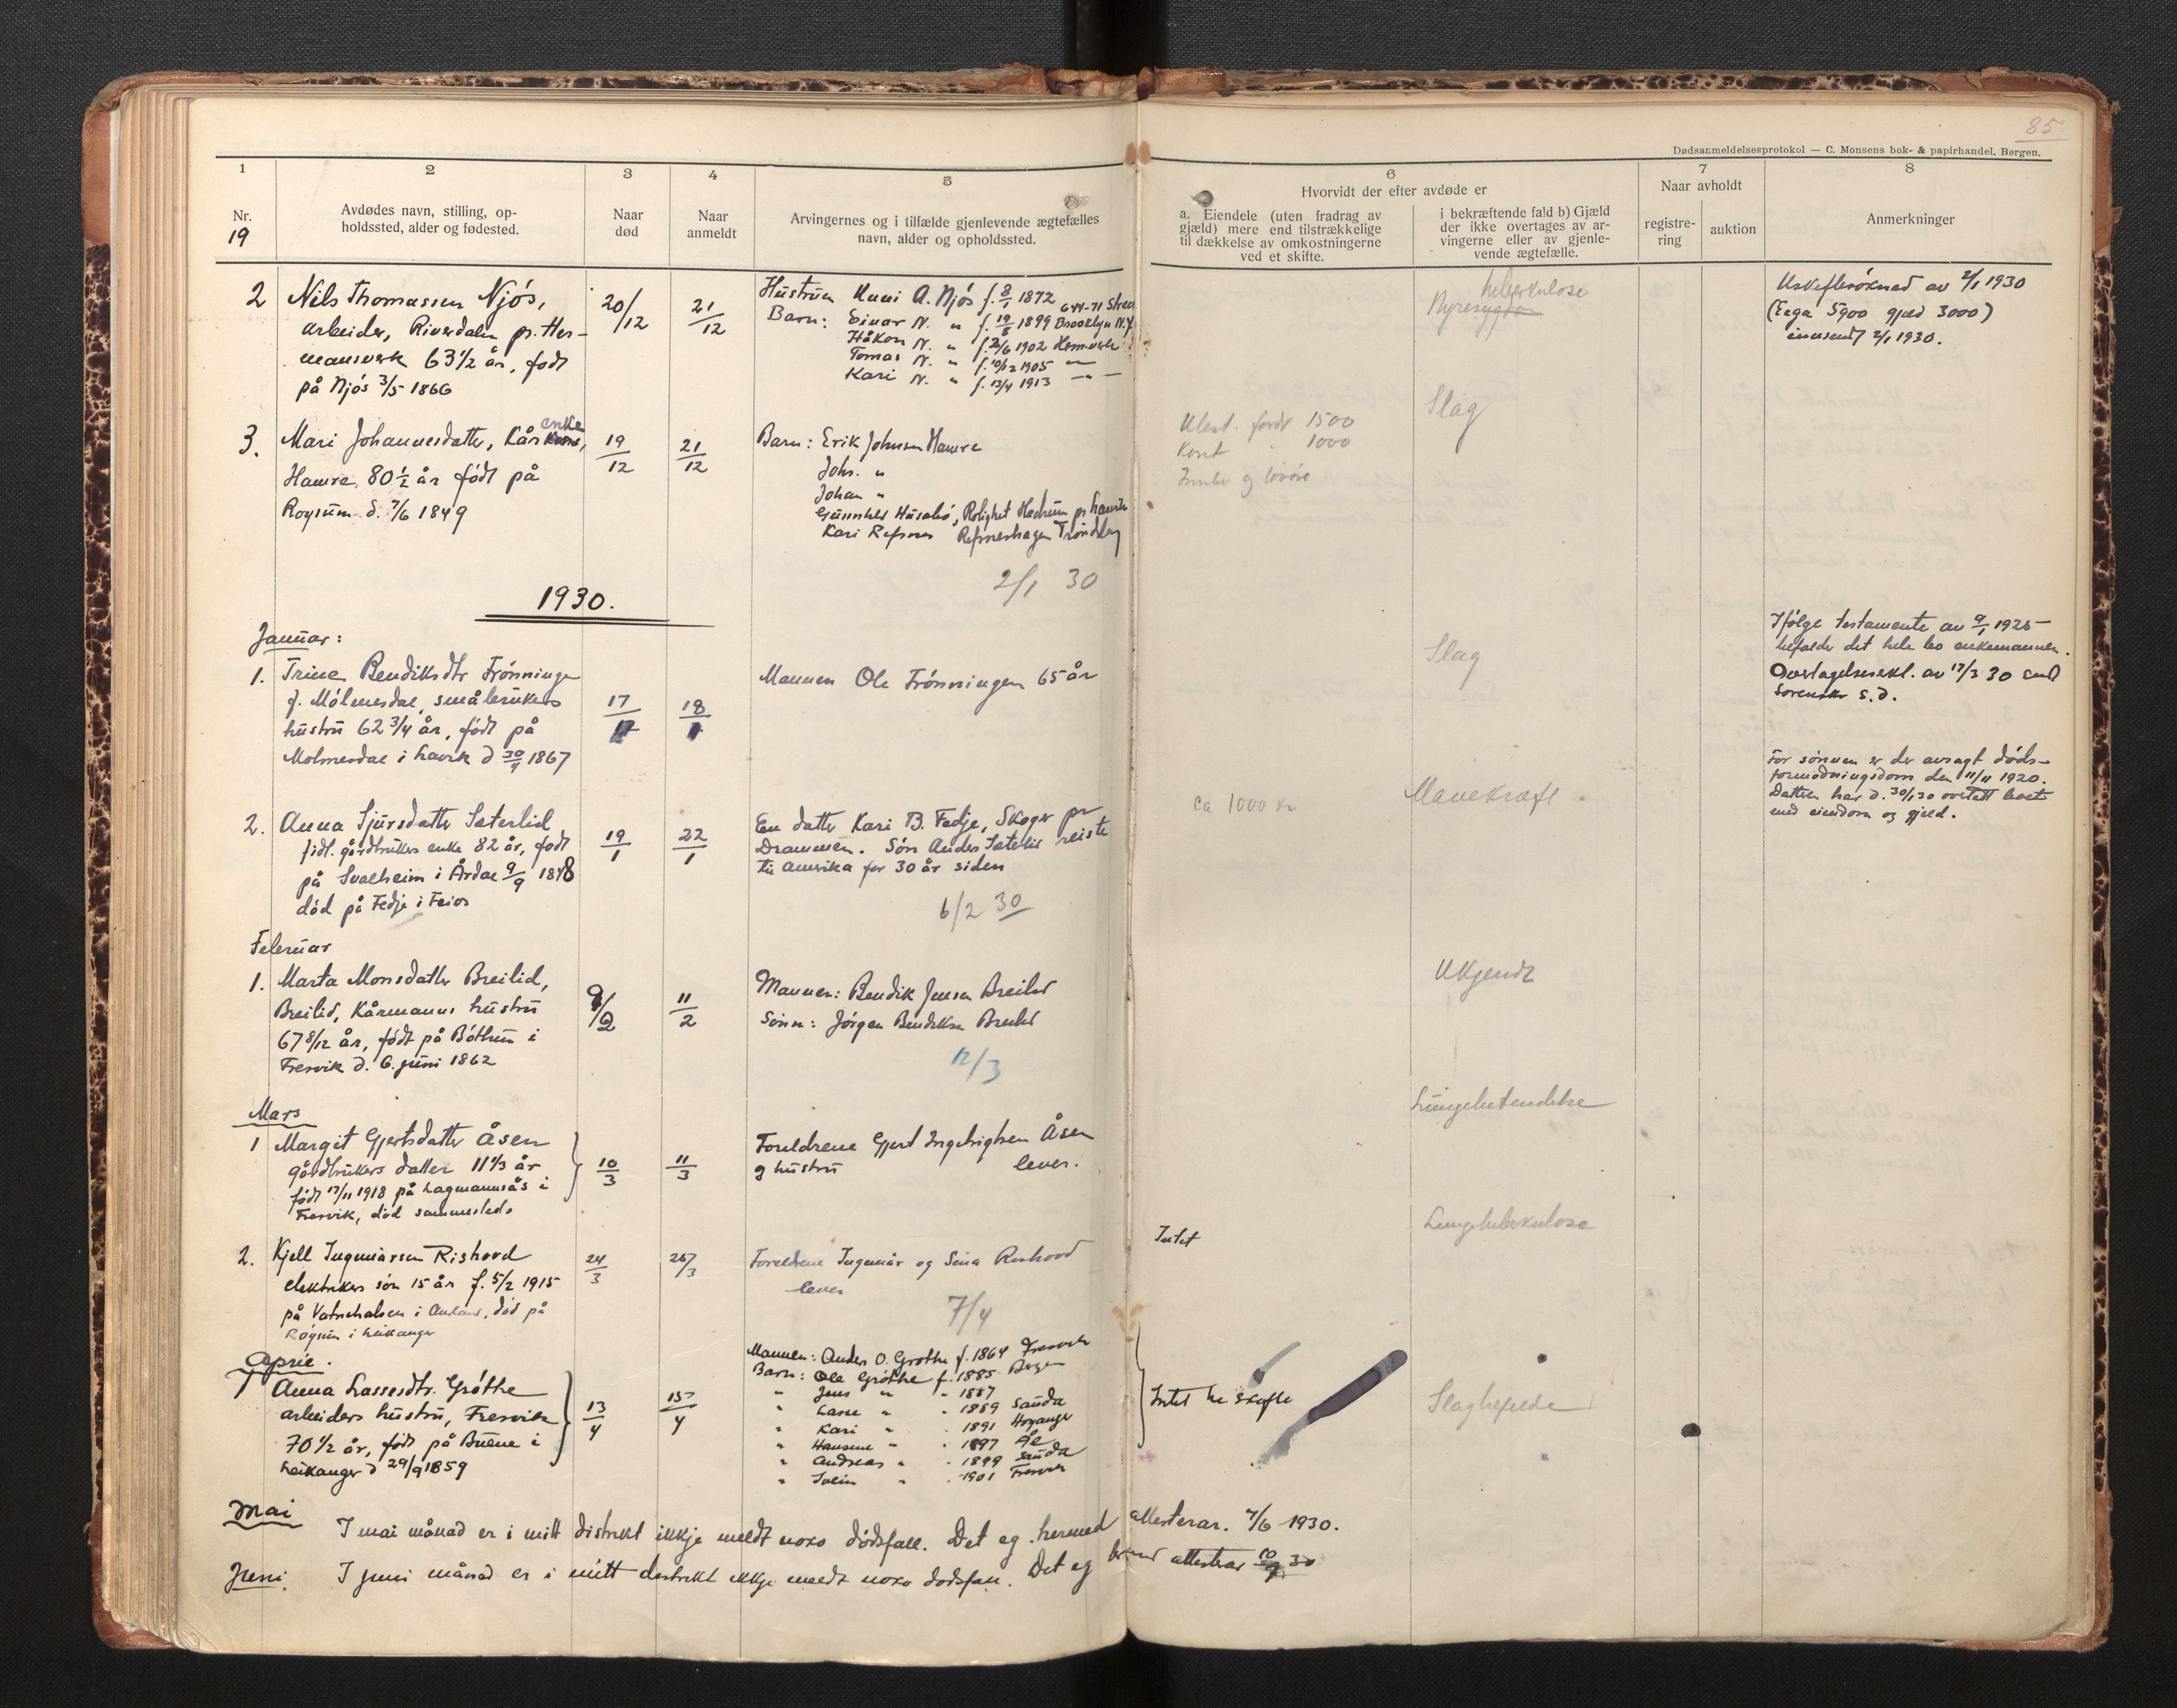 85.
Dødsanmeldelsesprotokol — C. Monsens bok- & papirhandel, Bergen.
1
2
3
4
5
6
7
8
Nr.
19
Avdødes navn, stilling, op-
holdssted, alder og fødested.
Naar
død
Naar
anmeldt
Arvingernes og i tilfælde gjenlevende ægtefælles
navn, alder og opholdssted.
Hvorvidt der efter avdøde er
a. Eiendele (uten fradrag av
gjæld) mere end tilstrækkelige
til dækkelse av omkostningerne
ved et skifte.
i bekræftende fald b) Gjæld
der ikke overtages av ar-
vingerne eller av gjenle-
vende ægtefælle.
Naar avholdt
registre-
ring
auktion
Anmerkninger
2 Nils Thomassen Njøs,
arbeider, Riverdalen pr. Her-
mansverk 63 1/2 år, født
på Njøs 3/5 1866
20/12
21/12
Hustrun Kari A. Njøs f. 8/1 1872
Barn: Einar N. " f. 19/8 1899 644-71 Street Brooklyn N.Y.
Håkon N. " f. 2/6 1902 Hermansverk
Tomas N. " f. 10/12 1905 — " —
Kari N. " f. 13/4 1913 — " —
tuberkulose
Nyresygdom
av 2/1 1930
(Eega 5900 gjeld 3000)
innsendt 2/1 1930.
3. Mari Johannesdatter, Kår enke,
Hamre, 80 1/2 år født på
Røysum d. 7/6 1849
19/12
21/12
Barn: Erik Johnsen Hamre
Johs. "
Johan "
Gunnhild Husabø, Rolighet Hedrum pr Larvik
Kari Refsnes Refsneshagen Trøndelag
2/1 30
1500
Kont " 1000
Innbo og løsøre
Slag
1930.
Januar:
1. Trine Bendiksdtr Frønningen
f. Mølmesdal, småbrukers
hustru 62 3/4 år, født på
Molmesdal i Lavik d 30/4 1867
17/1
18/1
Mannen Ole Frønningen 65 år
Slag
Ifølge testamente av 9/1 1925
tilfalder det hele bo enkemannen.
Overtagelseserkl. av 17/3 30 send
Sorenskr s.d.
2. Anna Sjursdatter Sæterlid
fidl. gårdbrukers enke 82 år, født
på Svalheim i Årdal 9/9 1848
død på Fedje i Feios
19/1
22/1
En datter Kari B. Fedje, Skoger pr
Drammen. Søn Anders Sæterlid reiste
til Amerika for 30 år siden
6/2 30
ca 1000 kr
Mavekræft
For sønnen er der avsagt døds-
formodningsdom den 11/11 1920.
Datteren har d. 30/1 30 overtatt boet
med eiendom og gjeld.
Februar
1. Marta Monsdatter Breilid,
Breilid, Kårmanns hustru
67 8/12 år, født på Bøthun i
Fresvik d. 6. juni 1862
9/2
11/2
Mannen: Bendik Jensen Breilid
Sønn: Jørgen Bendiksen Breilid
12/3
Ukjendt
Mars
1 Margit Gjertsdatter Åsen
gårdbrukers datter 11 1/3 år
født 17/11 1918 på Lagmannsås i
Fresvik, død sammesteds
10/3
11/3
Foreldrene Gjert Ingebrigtsen Åsen
og hustru lever.
Lungebetendelse
2. Kjell Ingmarsen Rishovd
elektrikers søn 15 år f. 5/2 1915
på Vatnehalsen i Aurland, død på
Røysum i Leikanger
24/3
25/3
Foreldrene Ingemar og Sina Rishovd
lever
7/4
Intet
Lungetuberkulose
April.
1 Anna Lassesdtr. Grøthe
arbeiders hustru, Fresvik
70 1/2 år, født på Buene i
Leikanger d 29/9 1859
13/4
15/4
Mannen: Anders O. Grøthe f. 1864 Fresvik
Barn: Ole Grøthe f. 1885 Bergen
" Jens " " 1887
" Lasse " " 1889 Sauda
" Kari " " 1891 Høyanger
" Hansine " " 1897 Ål
" Andreas " " 1899 Sauda
" Svein " " 1901 Fresvik
Intet til skifte
Slagtilfelde
Mai I mai månad er i mitt distrikt ikkje meldt noko dødsfall. Det eg hermed attesterar. 7/6 1930.
Juni. I juni månad er i mitt distrikt ikkje meldt noko dødsfall. Det eg hermed attesterar 10/7 30